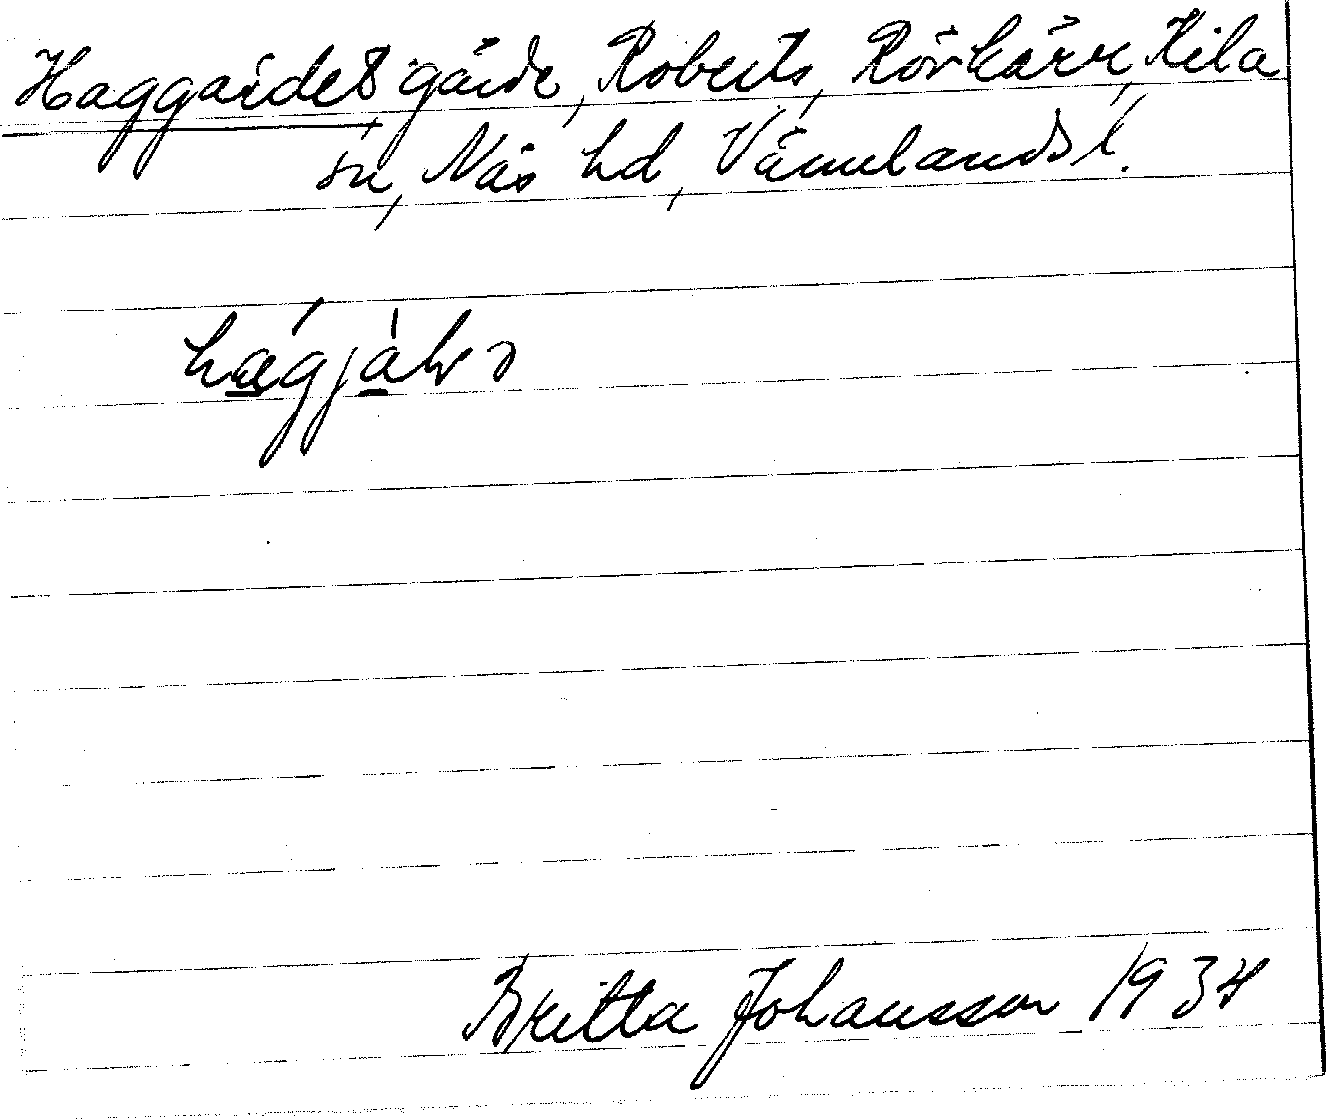 Haggärdet, gärde, Roberts, Rörkärr, Kila
sn, Näs hd, Värmlands l.
Britta Johansson 1934